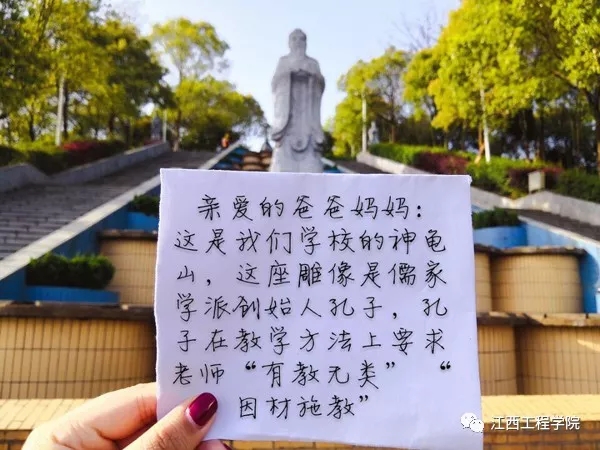 亲爱的爸爸妈妈：
这是我们学校的神龟
山，这座雕像是儒家
学派创始人孔子，孔
子在教学方法上要求
老师“有教无类”“
因材施教”
江西工程学院